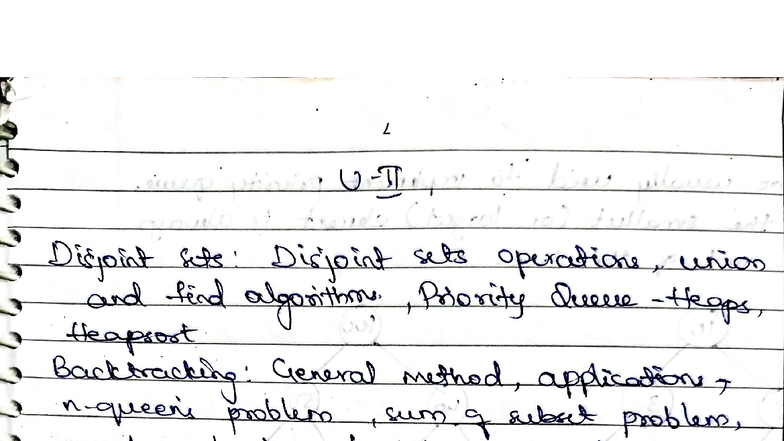 U-II
Disjoint sets: Disjoint sets operations, union
and find algorithms, Priority Queue - Heaps,
Heapsort
Backtracking: General method, applications,
n-queen's problem, sum of subset problem,